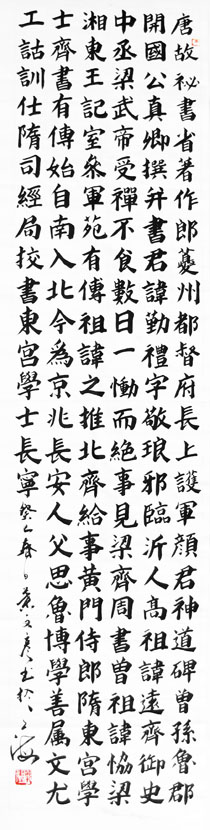 唐故祕書省著作郎夔州都督府長上護軍顏君神道碑曾孫魯郡
開國公真卿撰并書君諱勤禮字敬琅邪臨沂人高祖諱遠齊御史
中丞梁武帝受禪不食數日一慟而絶事見梁齊周書曾祖諱恊梁
湘東王記室叅軍苑有傳祖諱之推北齊給事黃門侍郎隋東宮學
士齊書有傳始自南入北今爲京兆長安人父思魯博學善属文尤
工詁訓仕隋司經局挍書東宮學士長寧 癸巳春日書於上海